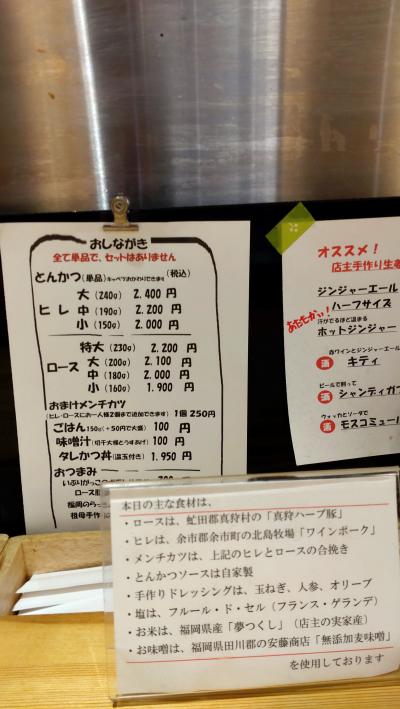 おしながき
全て単品で、セットはありません
とんかつ(単品)キャベツおかわりできます(税込)
大(240g) 2.400円
ヒレ 中(190g) 2.200円
小(150g) 2.000円
特大(230g) 2.200円
ロース 大(200g) 2.100円
中(180g) 2.000円
小(160g) 1.900円
おまけメンチカツ
(ヒレ・ロースにお一人様2個まで追加できます)1個250円
ごはん150g(+50円で大盛) 100円
味噌汁(切干大根とうすあげ) 100円
タレかつ丼(温玉付き) 1.950円
おつまみ
いぶりがっこ
ロース
福岡の
祖母手作
オススメ!
店主手作り生
ジンジャーエール
ハーフサイズ
あたたかい!
汗がでるほど温まる
ホットジンジャー
赤ワインとジンジャーエール
酒 キティ
ビールで割って
酒 シャンディガフ
ウォッカとソーダで
酒 モスコミュール
本日の主な食材は、
・ロースは、虻田郡真狩村の「真狩ハーブ豚」
・ヒレは、余市郡余市町の北島牧場「ワインポーク」
・メンチカツは、上記のヒレとロースの合挽き
・とんかつソースは自家製
・手作りドレッシングは、玉ねぎ、人参、オリーブ
・塩は、フルール・ド・セル(フランス・ゲランデ)
・お米は、福岡県産「夢つくし」(店主の実家産)
・お味噌は、福岡県田川郡の安藤商店「無添加麦味噌」
を使用しております